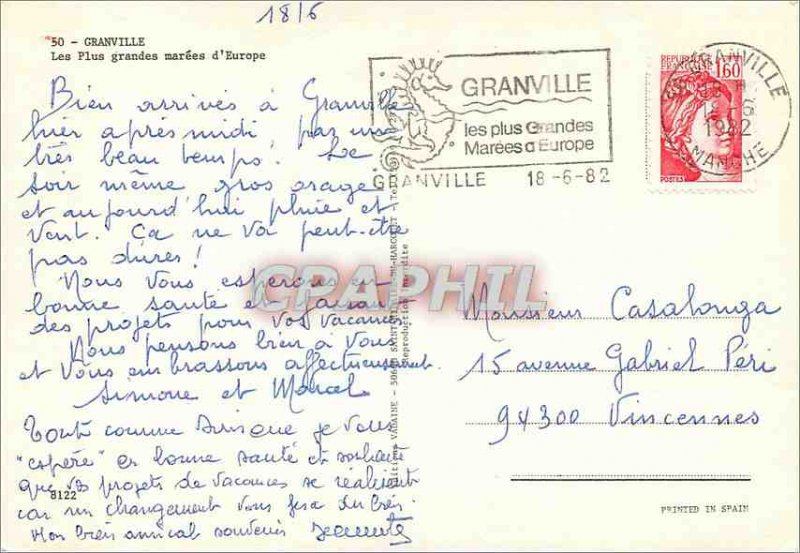 18/6
50 - GRANVILLE
Les Plus grandes marées d'Europe
Bien arrivés à Granville
hier après midi par un
très beau temps! Le
soir même gros orage
et aujourd'hui pluie et
Vent. Ça ne va peut-être
pas durer!
Nous vous espérons en
bonne santé et faisant
des projets pour vos vacances
Nous pensons bien à Vous
et Vous embrassons affectueusement.
Simone et Marcel
Tout comme je vous
"espère" en bonne santé et souhaite
que vos projets de vacances se réalisent
car un changement vous fera du bien.
Mon bien amical souvenir
8122
GRANVILLE
les plus Grandes
Marées d'Europe
GRANVILLE 18-6-82
REPUBLIQUE
FRANÇAISE
1,60
POSTES
GRANVILLE
1982
MANCHE
CPAPHIL
Reproduction Interdite
Monsieur Casalonga
15 avenue Gabriel Péri
94300 Vincennes
PRINTED IN SPAIN